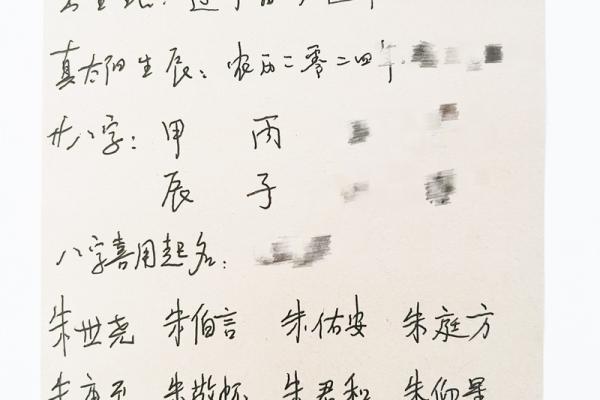 真太阳生辰：农历二零二四年
八字：甲 丙
辰 子
八字喜用起名：
朱世尧 朱伯言 朱佑安 朱庭方
朱 朱敬怀 朱君和 朱仰星